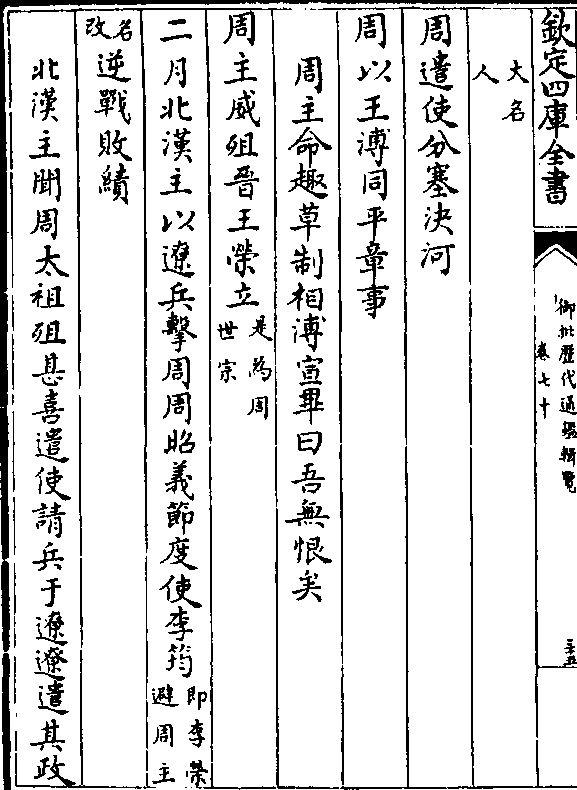 欽定四庫全書
御批歷代通鑑輯覽
卷七十
大名
人
周遣使分塞決河
周以王溥同平章事
周主命趣草制相溥宣畢曰吾無恨矣
周主威殂晉王榮立是為周世宗
二月北漢主以遼兵擊周周昭義節度使李筠即李榮避周主
名改逆戰敗績
北漢主聞周太祖殂甚喜遣使請兵于遼遼遣其政